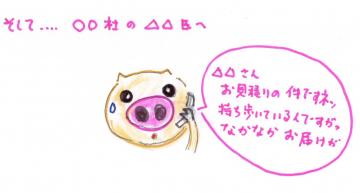 そして.... ○○社の△△氏へ
△△さん
お見積りの件ですネッ
持ち歩いているんですがっ
なかなか お届けが